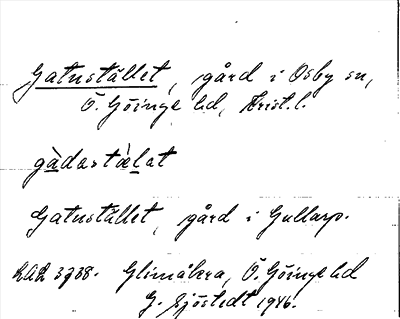 Gatustället, gård i Osby sn,
Ö. Göinge hd, Krist. l.
gàdastὰlat
Gatustället, gård i Gullarp.
LAL 3738. Glimåkra, Ö. Göinge hd
G. Sjöstedt 1946.